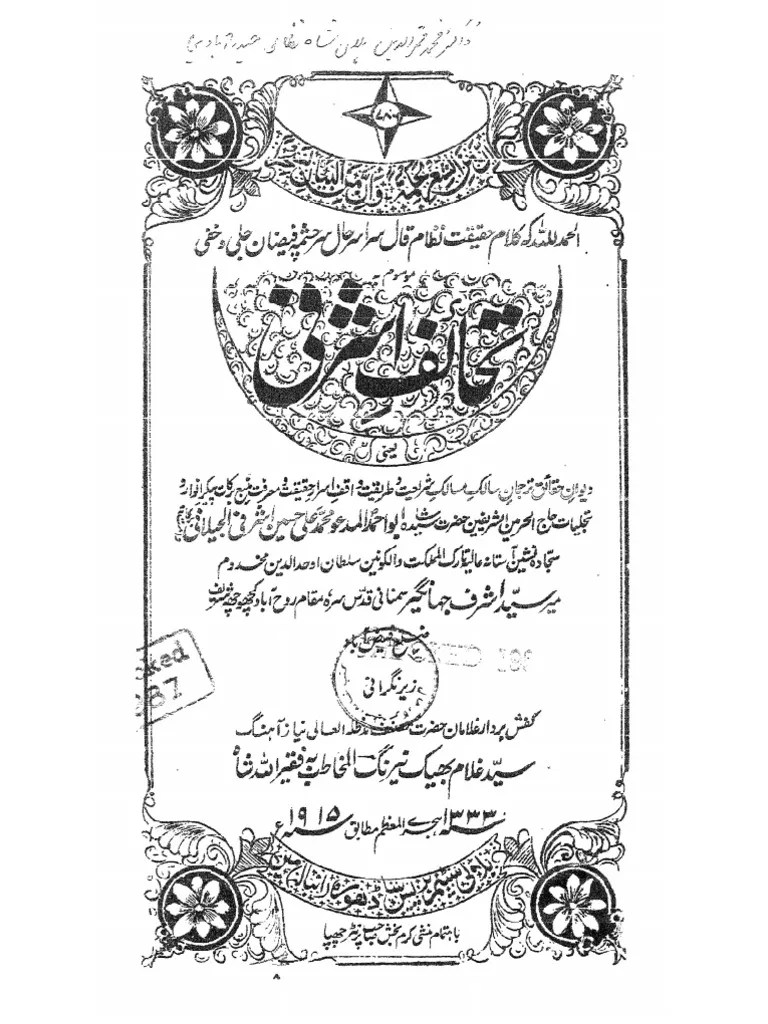 ڈاکٹر محمد قمرالدین
۷۸۶
ان من الشعر لحکمۃ وان من البیان
الحمد للہ کہ کلام حقیقت نظام قال سراسر حال سرچشمہ فیضان جلی و خفی
موسوم بہ
تحائف اشرفی
یعنی
دیوان حقائق ترجمان سالک مسالک شریعت و طریقت و اقف اسرار حقیقت و معرفت منبع برکات پیکر انوار و
تجلیات حاج الحرمین الشریفین حضرت سید شاہ ابو احمد المدعو محمد علی حسین اشرفی الجیلانی
سجادہ نشین آستانہ عالیہ تارک المملکت والکونین سلطان اوحدالدین مخدوم
میر سید اشرف جہانگیر سمنانی قدس سرہ مقام روح آباد کچھوچھہ شریف
ضلع فیض آباد
زیر نگرانی
کفش بردار غلامان حضرت مصنف مدظلہ العالی نیاز آہنگ
سید غلام بھیک نیرنگ المخاطب بہ فقیر اللہ شاہ
۱۳۳۳ ہجری المعظم مطابق ۱۹۱۵ء
بلالی سٹیم پریس ساڈھورہ ضلع انبالہ میں
باہتمام منشی کرم بخش پرنٹر چھپا